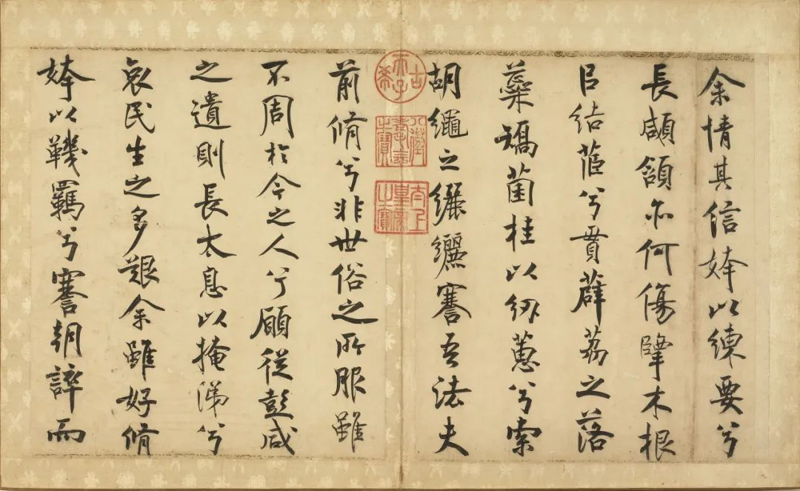 余情其信姱以練要兮
長顑頷亦何傷擥木根
㠯結茝兮貫薜荔之落
蘂矯菌桂以紉蕙兮索
胡繩之纚纚謇吾法夫
古希天子
太上皇帝之寶
前脩兮非世俗之所服雖
不周於今之人兮願從彭咸
之遺則長太息以掩涕兮
哀民生之多艱余雖好脩
姱以鞿羈兮謇朝誶而